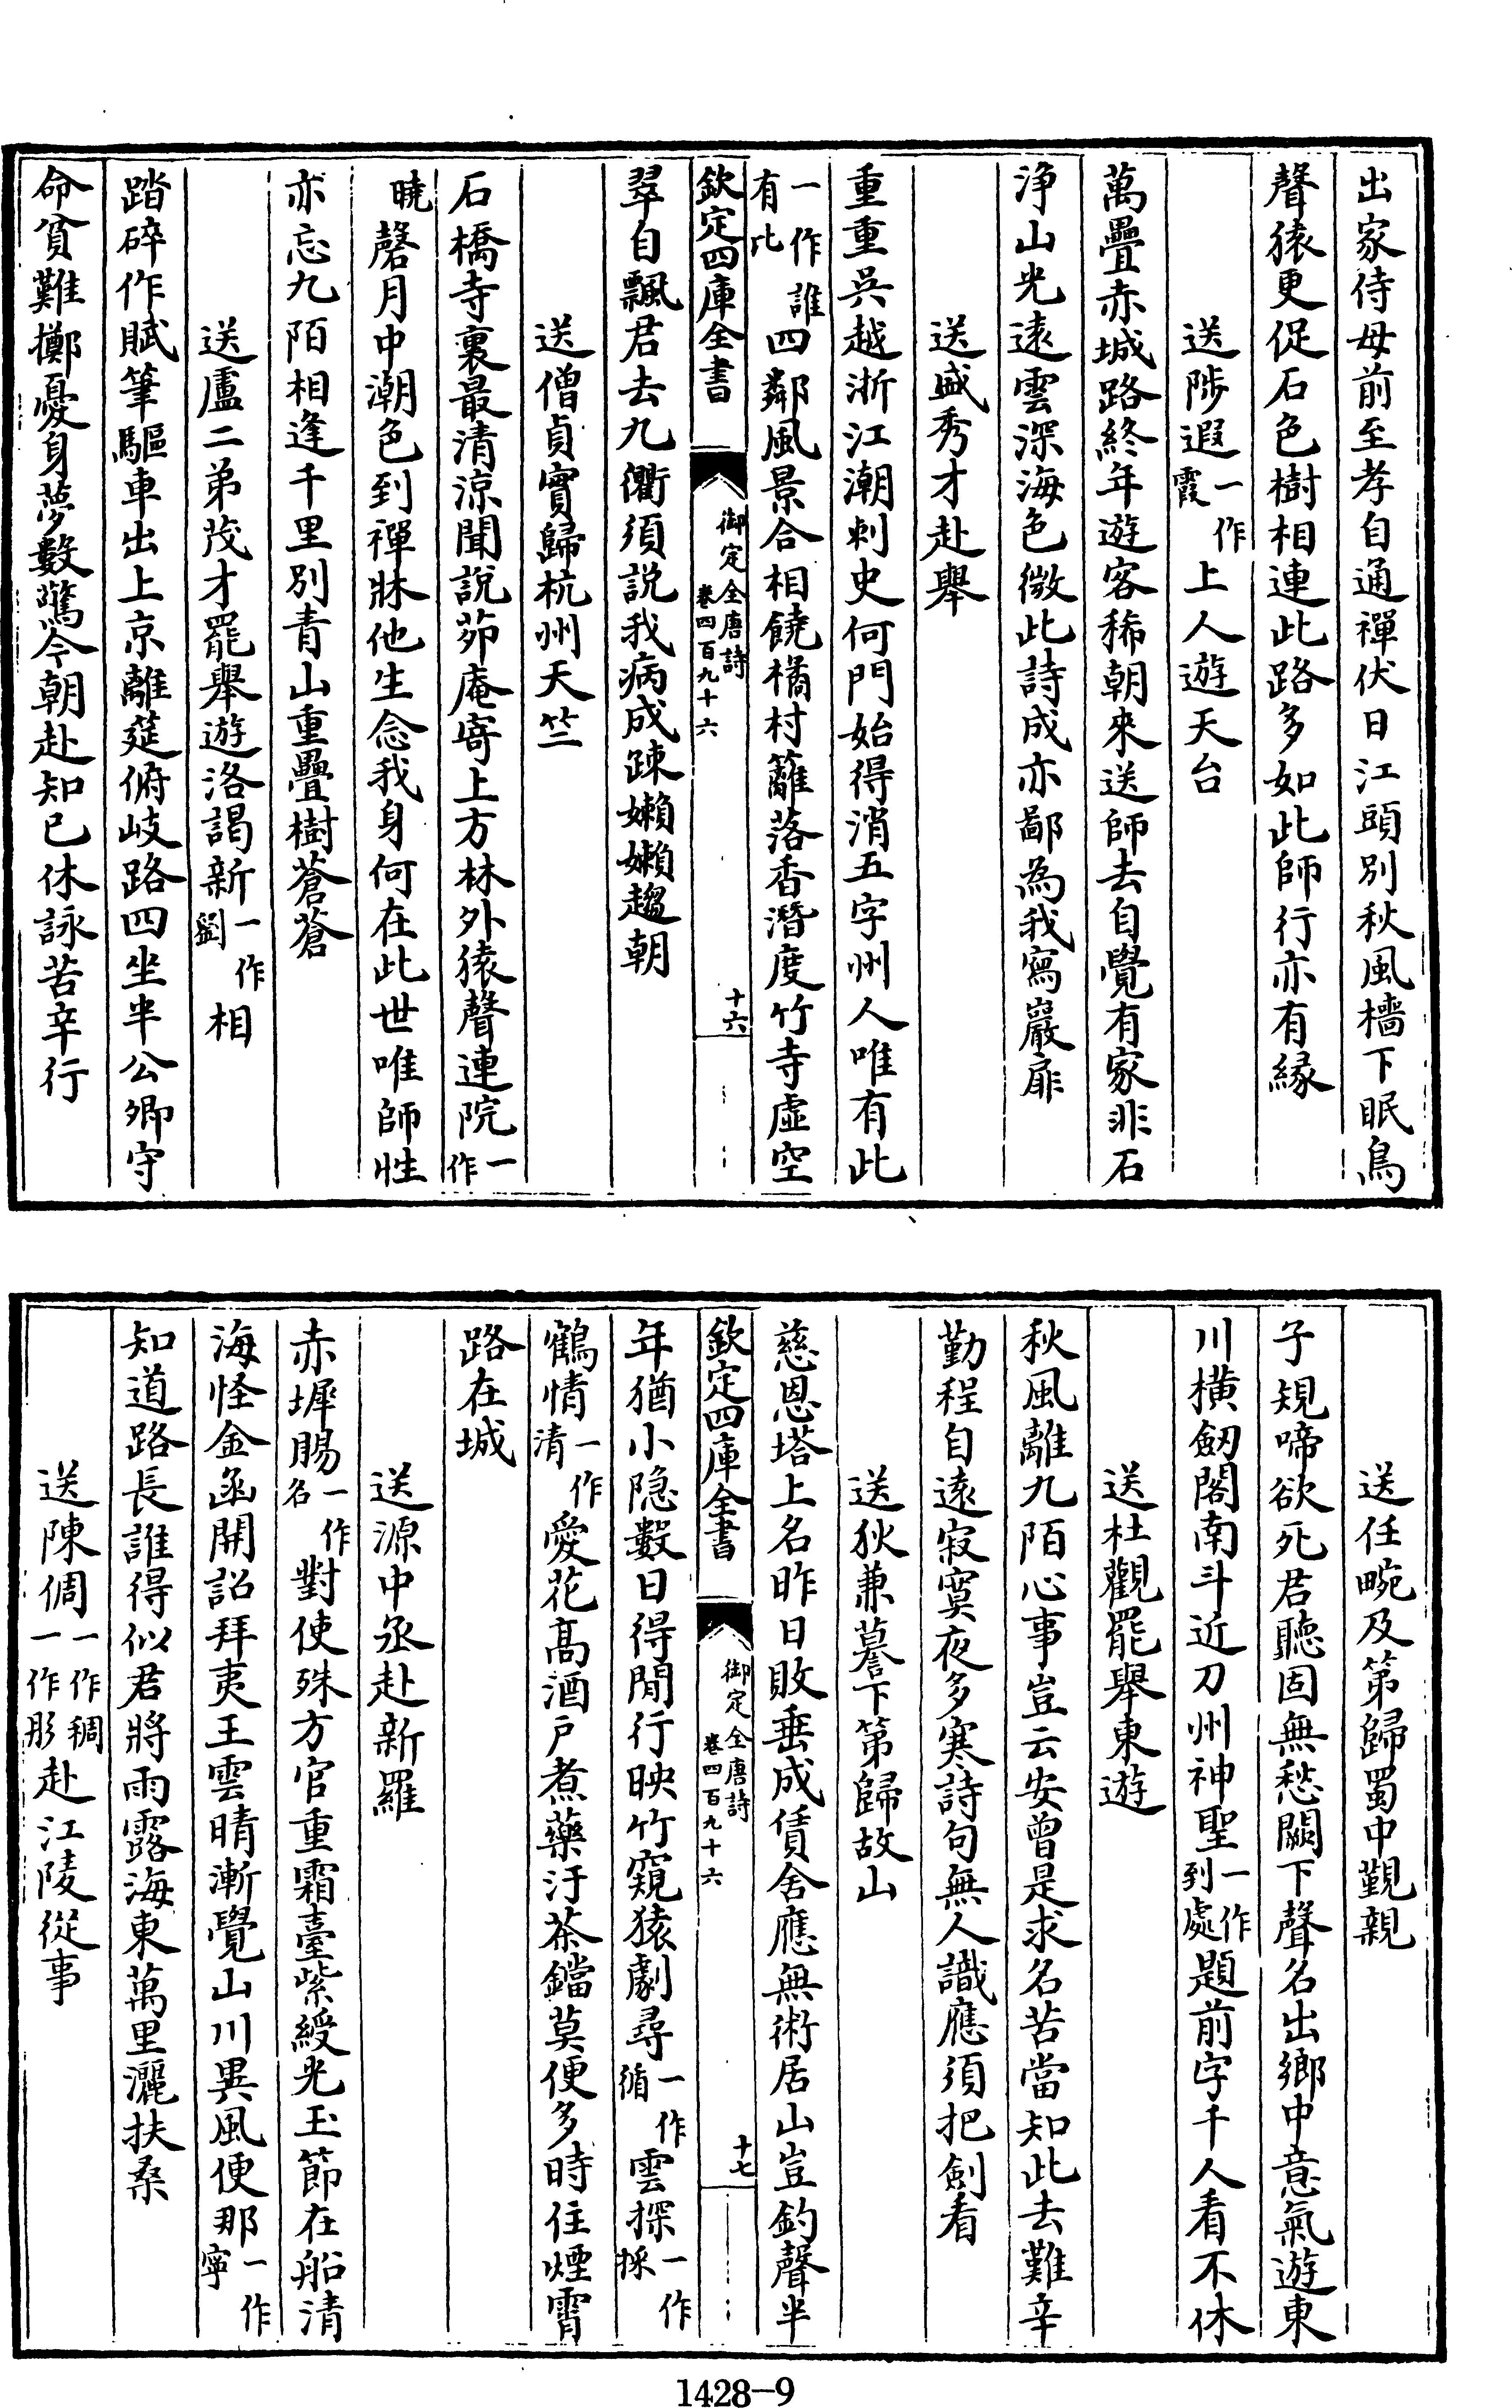 出家侍母前至孝自通禪伏日江頭別秋風檣下眠鳥
聲猿更促石色樹相連此路多如此師行亦有緣
送陟遐一作霞上人遊天台
萬疊赤城路終年遊客稀朝來送師去自覺有家非石
浄山光遠雲深海色微此詩成亦鄙為我寫巖扉
送盛秀才赴舉
重重吳越浙江潮刺史何門始得消五字州人唯有此
一作誰有比四鄰風景合相饒橘村籬落香潛度竹寺虛空
欽定四庫全書 御定全唐詩卷四百九十六 十六
翠自飄君去九衢須説我病成疎嬾嬾趨朝
送僧貞實歸杭州天竺
石橋寺裏最清涼聞說茆庵寄上方林外猿聲連院一作
曉磬月中潮色到禪牀他生念我身何在此世唯師性
亦忘九陌相逢千里別青山重疊樹蒼蒼
送盧二弟茂才罷舉遊洛謁新一作劉相
踏碎作賦筆驅車出上京離筵俯岐路四坐半公卿守
命貧難擲憂身夢數驚今朝赴知已休詠苦辛行
送任畹及第歸蜀中觐親
子規啼欲死君聽固無愁闕下聲名出鄉中意氣遊東
川橫劒閣南斗近刀州神聖一作到處題前字千人看不休
送杜觀罷舉東遊
秋風離九陌心事豈云安曾是求名苦當知此去難辛
勤程自遠寂寞夜多寒詩句無人識應須把劍看
送狄兼謩下第歸故山
慈恩塔上名昨日敗垂成賃舍應無術居山豈釣聲半
欽定四庫全書 御定全唐詩卷四百九十六 十七
年猶小隱數日得閒行映竹窺猿劇尋一作循雲探一作採
鶴情一作清愛花髙酒戶煮藥汙茶鐺莫便多時住煙霄
路在城
送源中丞赴新羅
赤墀賜一作名對使殊方官重霜臺紫綬光玉節在船清
海怪金函開詔拜夷王雲晴漸覺山川異風便那一作寧
知道路長誰得似君將雨露海東萬里灑扶桑
送陳倜一作稠一作彤赴江陵從事
1428-9